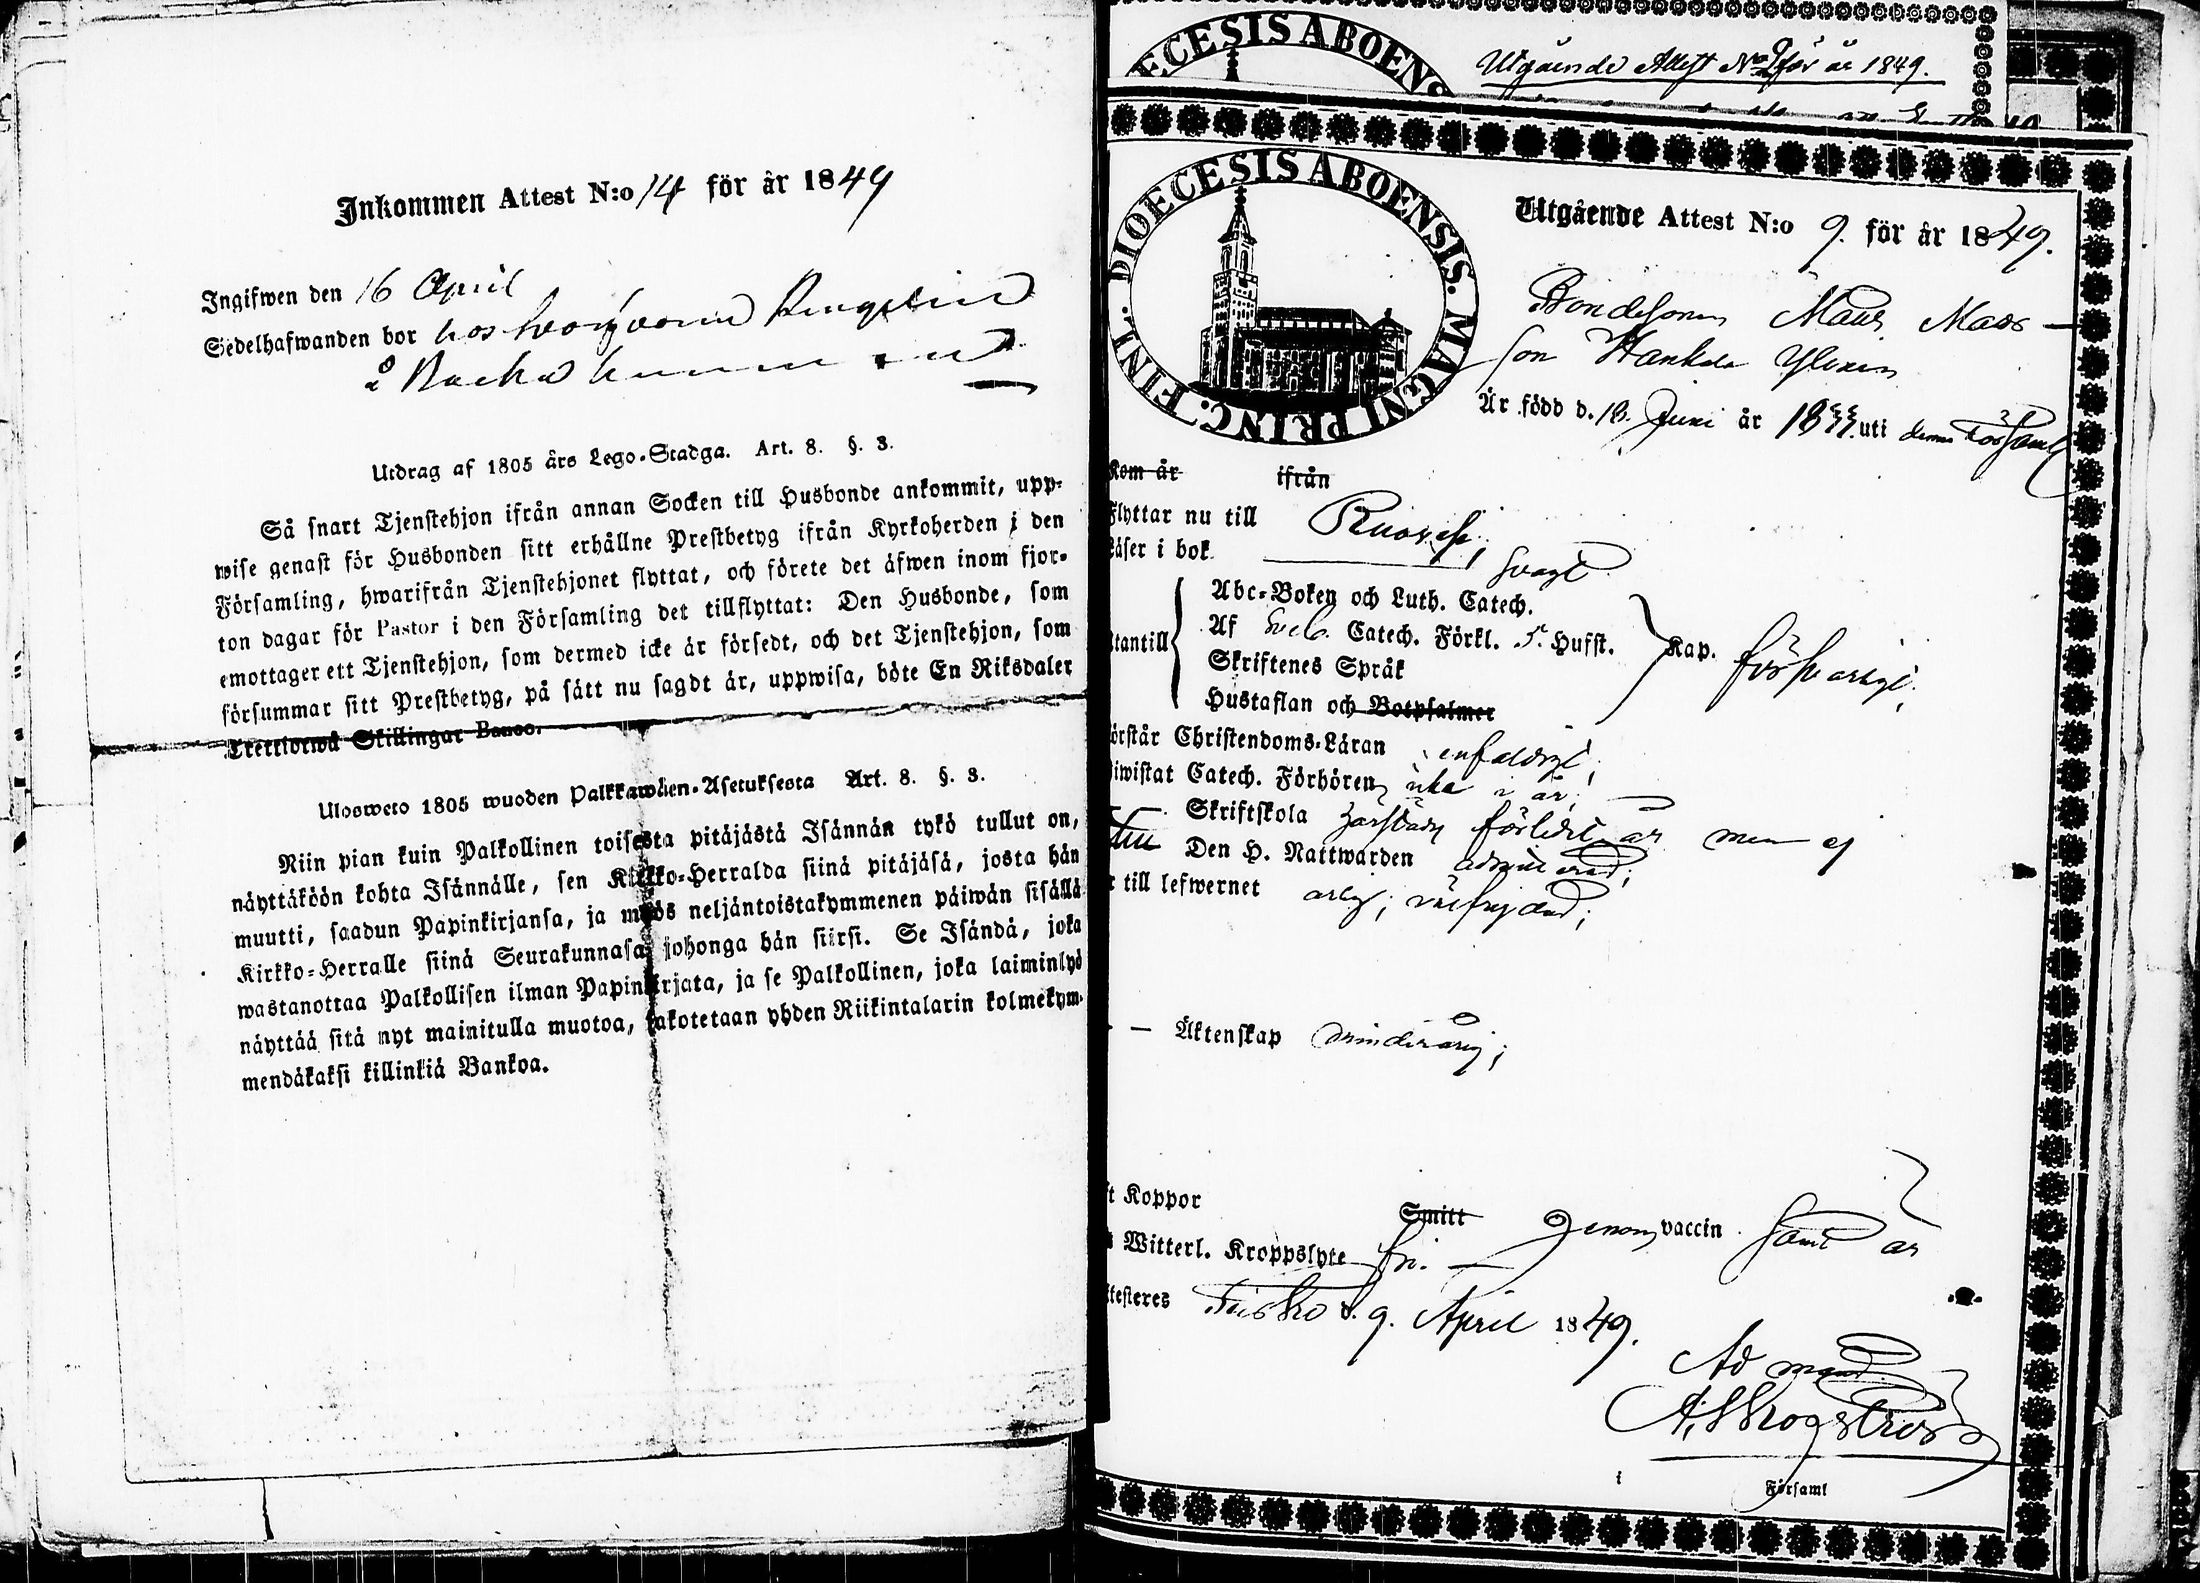 Inkommen Attest N:o 14 för år 1849
Ingifwen den 16 April
Sedelhafwanden bor hos
å
Utdrag af 1805 års Lego-Stadga. Art. 8. §. 3.
Så snart Tjenstehjon ifrån annan Socken till Husbonde ankommit, upp-
wise genast för Husbonden sitt erhållne Prestbetyg ifrån Kyrkoherden i den
Församling, hwarifrån Tjenstehjonet flyttat, och förete det äfwen inom fjor-
ton dagar för Pastor i den Församling det tillflyttat: Den Husbonde, som
emottager ett Tjenstehjon, som dermed icke är försedt, och det Tjenstehjon, som
försummar sitt Prestbetyg, på sätt nu sagdt är, uppwisa, böte En Riksdaler
Trettiotwå Skillingar Banco.
Ulosweto 1805 wuoden Palkkawäen-Asetuksesta Art. 8. §. 3.
Niin pian kuin Palkollinen toisesta pitäjästä Isännän tykö tullut on,
näyttäköön kohta Isännälle, sen Kirkko-Herralda siinä pitäjäsä, josta hän
muutti, saadun Papinkirjansa, ja myös neljäntoistakymmenen päiwän sisällä
Kirkko-Herralle siinä Seurakunnasa johonga hän siirsi. Se Isändä, joka
wastanottaa Palkollisen ilman Papinkirjata, ja se Palkollinen, joka laiminlyö
näyttää sitä nyt mainitulla muotoa, sakotetaan yhden Riikintalarin kolmekym-
mendäkaksi killinkiä Bankoa.
ECESIS ABOENS
Utgående Attest No 9 för år 1849.
DIOECESIS ABOENSIS. MAGNI PRINC. FINL.
Utgående Attest N:o 9. för år 1849.
Bondesonen Mats Mats-
son Hankala Ylinen
Är född d. 18. Juni år 1833. uti denna Församl
Kom år ifrån
Flyttar nu till Ruovesi;
Läser i bok svagt
Abc-Boken och Luth. Catech.
Af Sveb. Catech. Förkl. 5. Hufst.
Utantill Skriftenes Språk Kap. försvarligt;
Hustaflan och Botpsalmer
örstår Christendoms-Läran enfaldigt;
iwistat Catech. Förhören icke i år;
Skriftskola förledit år men ej
Den H. Nattwarden admitterad;
till lefwernet ärlig; välfrejdad;
— Äktenskap minderårig;
t Koppor Smitt Genom vaccin samt är
Witterl. Kroppslyte fri.
ttesteres d. 9. April 1849.
Ad mand.
A. Skogström
i Församl